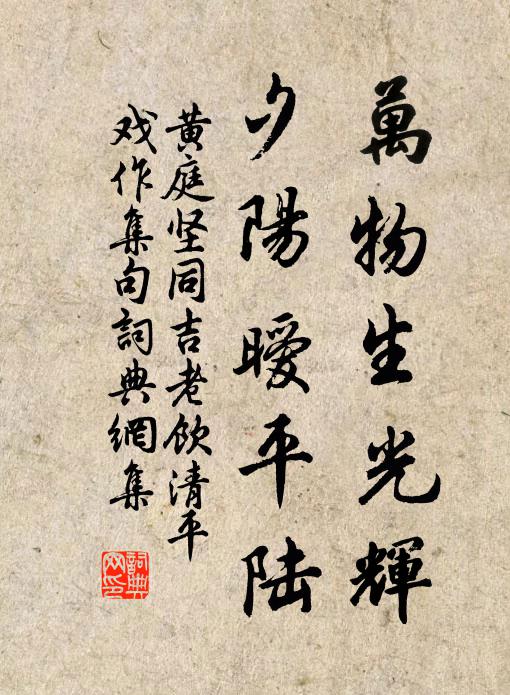 萬物生光輝
夕陽曖平陆
黄庭坚同吉老飲清平
戏作集句詞典網集
詞典网印